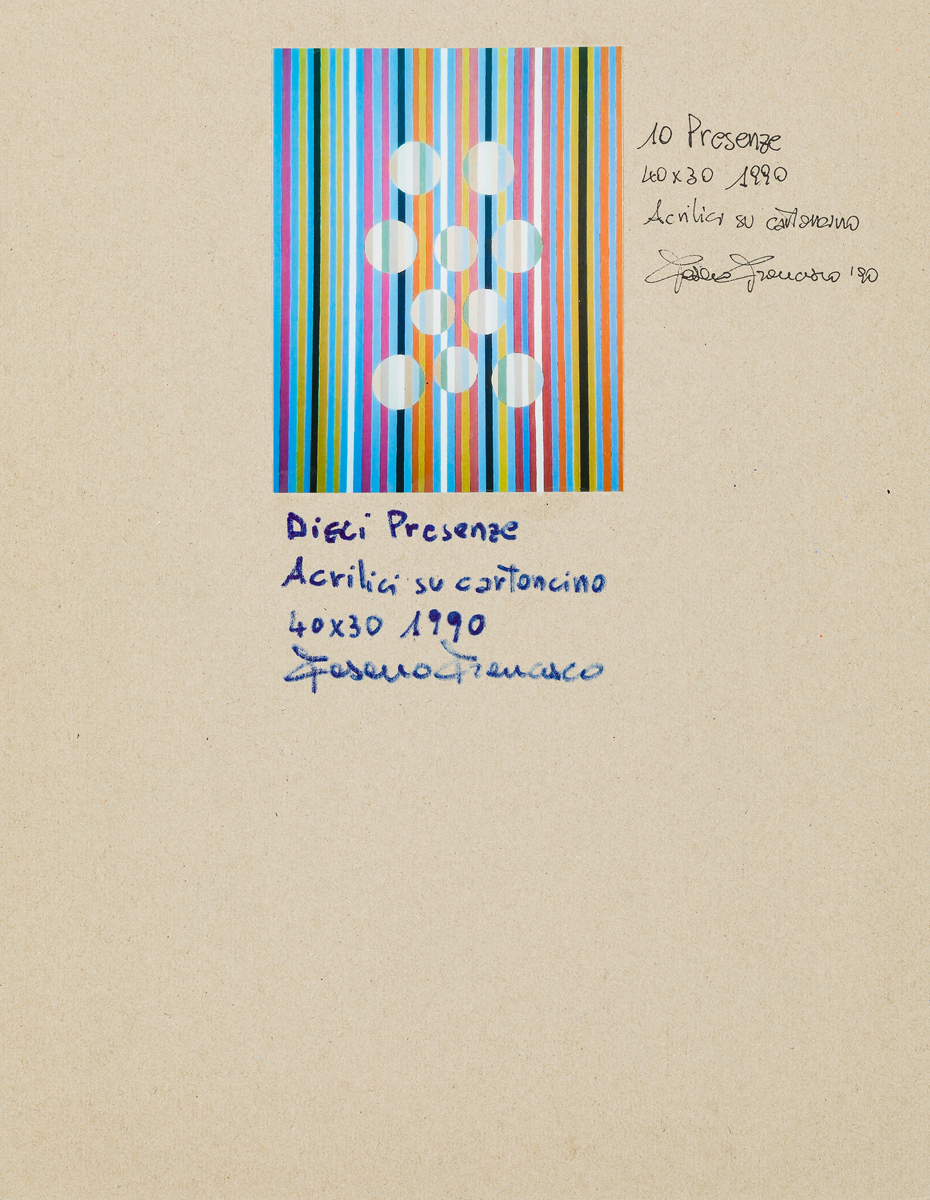 10 Presenze
40x30 1990
Acrilici su cartoncino
Fasano Francesco '90
Dieci Presenze
Acrilici su cartoncino
40x30 1990
Fasano Francesco